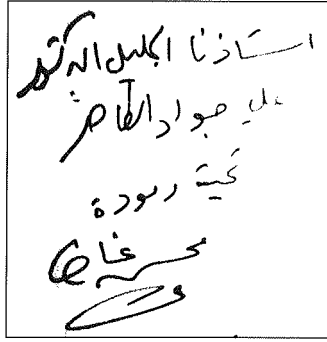 استاذنا الجليل الدكتور
علي جواد الطاهر
تحية ومودة
محسن